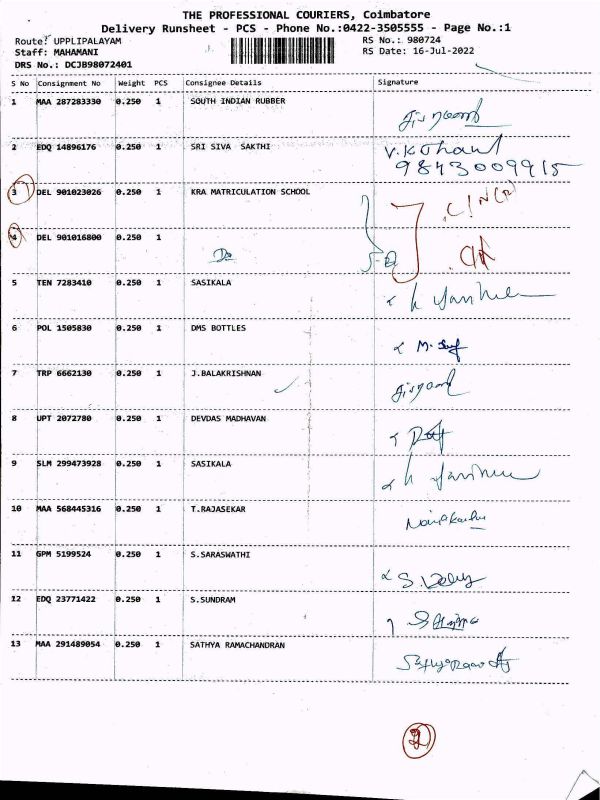 THE PROFESSIONAL COURIERS, Coimbatore
Delivery Runsheet - PCS - Phone No.:0422-3505555 - Page No.:1
Route: UPPLIPALAYAM RS No.: 980724
Staff: MAHAMANI RS Date: 16-Jul-2022
DRS No.: DCJB98072401
S No Consignment No Weight PCS Consignee Details Signature
1 MAA 287283330 0.250 1 SOUTH INDIAN RUBBER
2 EDQ 14896176 0.250 1 SRI SIVA SAKTHI
9843009915
3 DEL 901023026 0.250 1 KRA MATRICULATION SCHOOL
4 DEL 901016800 0.250 1
Do
5 TEN 7283410 0.250 1 SASIKALA
6 POL 1505830 0.250 1 DMS BOTTLES
7 TRP 6662130 0.250 1 J.BALAKRISHNAN
8 UPT 2072780 0.250 1 DEVDAS MADHAVAN
9 SLM 299473928 0.250 1 SASIKALA
10 MAA 568445316 0.250 1 T.RAJASEKAR
11 GPM 5199524 0.250 1 S.SARASWATHI
12 EDQ 23771422 0.250 1 S.SUNDRAM
13 MAA 291489054 0.250 1 SATHYA RAMACHANDRAN